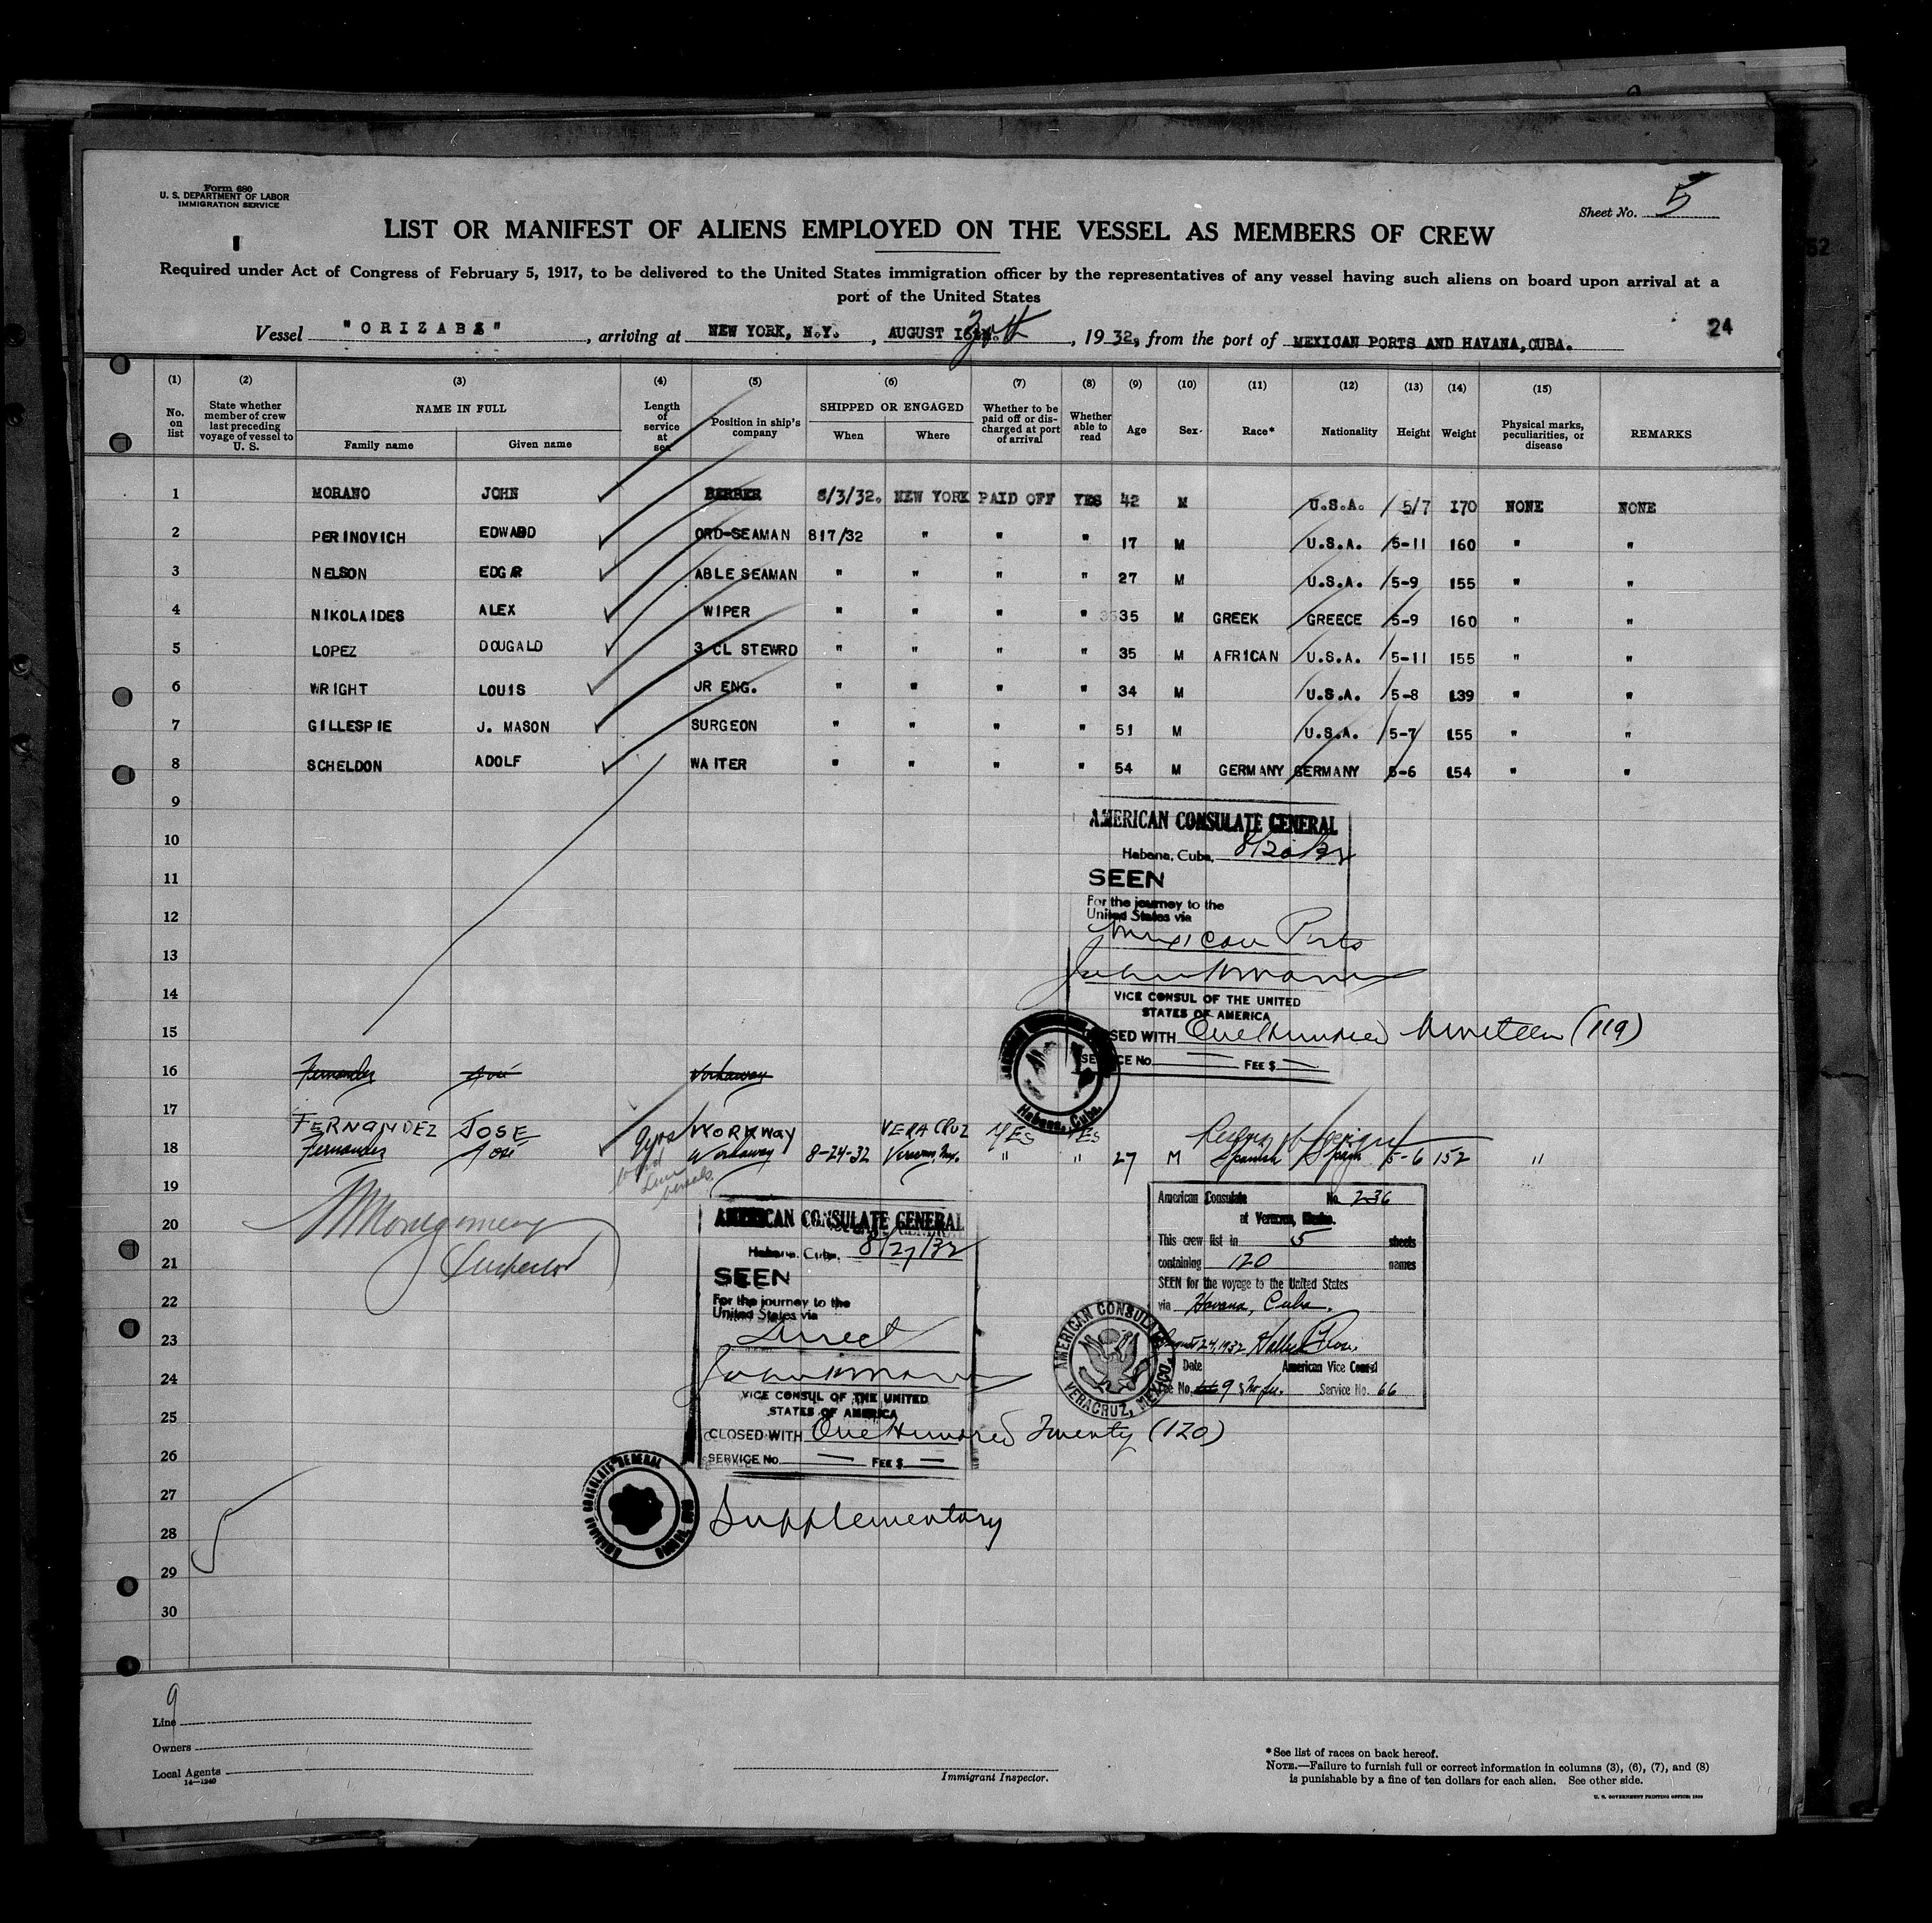 Form 680
U. S. DEPARTMENT OF LABOR
IMMIGRATION SERVICE
Sheet No. 5
LIST OR MANIFEST OF ALIENS EMPLOYED ON THE VESSEL AS MEMBERS OF CREW
Required under Act of Congress of February 5, 1917, to be delivered to the United States immigration officer by the representatives of any vessel having such aliens on board upon arrival at a
port of the United States
Vessel "ORIZABA", arriving at NEW YORK, N.Y., AUGUST 30th, 1932, from the port of MEXICAN PORTS AND HAVANA, CUBA.
24
(1) (2) (3) (4) (5) (6) (7) (8) (9) (10) (11) (12) (13) (14) (15)
No. on list
State whether member of crew last preceding voyage of vessel to U. S.
NAME IN FULL
Family name Given name
Length of service at sea
Position in ship's company
SHIPPED OR ENGAGED
When Where
Whether to be paid off or discharged at port of arrival
Whether able to read
Age Sex Race* Nationality Height Weight
Physical marks, peculiarities, or disease
REMARKS
1 MORANO JOHN BERBER 8/3/32. NEW YORK PAID OFF YES 42 M U.S.A. 5/7 170 NONE NONE
2 PERINOVICH EDWARD ORD-SEAMAN 817/32 " " " 17 M U.S.A. 5-11 160 " "
3 NELSON EDGAR ABLE SEAMAN " " " " 27 M U.S.A. 5-9 155 " "
4 NIKOLAIDES ALEX WIPER " " " " 35 M GREEK GREECE 5-9 160 " "
5 LOPEZ DOUGALD 3 CL STEWRD " " " " 35 M AFRICAN U.S.A. 5-11 155 " "
6 WRIGHT LOUIS JR ENG. " " " " 34 M U.S.A. 5-8 139 " "
7 GILLESPIE J. MASON SURGEON " " " " 51 M U.S.A. 5-7 155 " "
8 SCHELDON ADOLF WAITER " " " " 54 M GERMANY GERMANY 5-6 154 " "
9
10
11
12
13
14
15
AMERICAN CONSULATE GENERAL
Habana, Cuba, 8/20/32
SEEN
For the journey to the
United States via
Mexican Ports
VICE CONSUL OF THE UNITED
STATES OF AMERICA
CLOSED WITH One Hundred Nineteen (119)
SERVICE No. FEE $
Habana, Cuba.
16 Fernandez José Workaway
17 FERNANDEZ JOSE WORKWAY VERA CRUZ YES YES
18 Fernandez José 9 yrs Workaway 8-24-32 Veracruz, Mex. " " 27 M Spanish Spain 5-6 152 "
19
20
21
22
23
24
25
26
27
28
29
30
Montgomery
Inspector
AMERICAN CONSULATE GENERAL
Habana, Cuba, 8/27/32
SEEN
For the journey to the
United States via
Direct
VICE CONSUL OF THE UNITED
STATES OF AMERICA
CLOSED WITH One Hundred Twenty (120)
SERVICE No. FEE $
Supplementary
American Consulate No. 236
at Veracruz, Mexico.
This crew list in 5 sheets
containing 120 names
SEEN for the voyage to the United States
via Havana, Cuba.
August 24, 1932
Date American Vice Consul
Fee No. 9 Service No. 66
AMERICAN CONSULATE
VERACRUZ, MEXICO.
9
Line
Owners
Local Agents
14-1240
Immigrant Inspector.
*See list of races on back hereof.
NOTE.—Failure to furnish full or correct information in columns (3), (6), (7), and (8)
is punishable by a fine of ten dollars for each alien. See other side.
U. S. GOVERNMENT PRINTING OFFICE: 1930